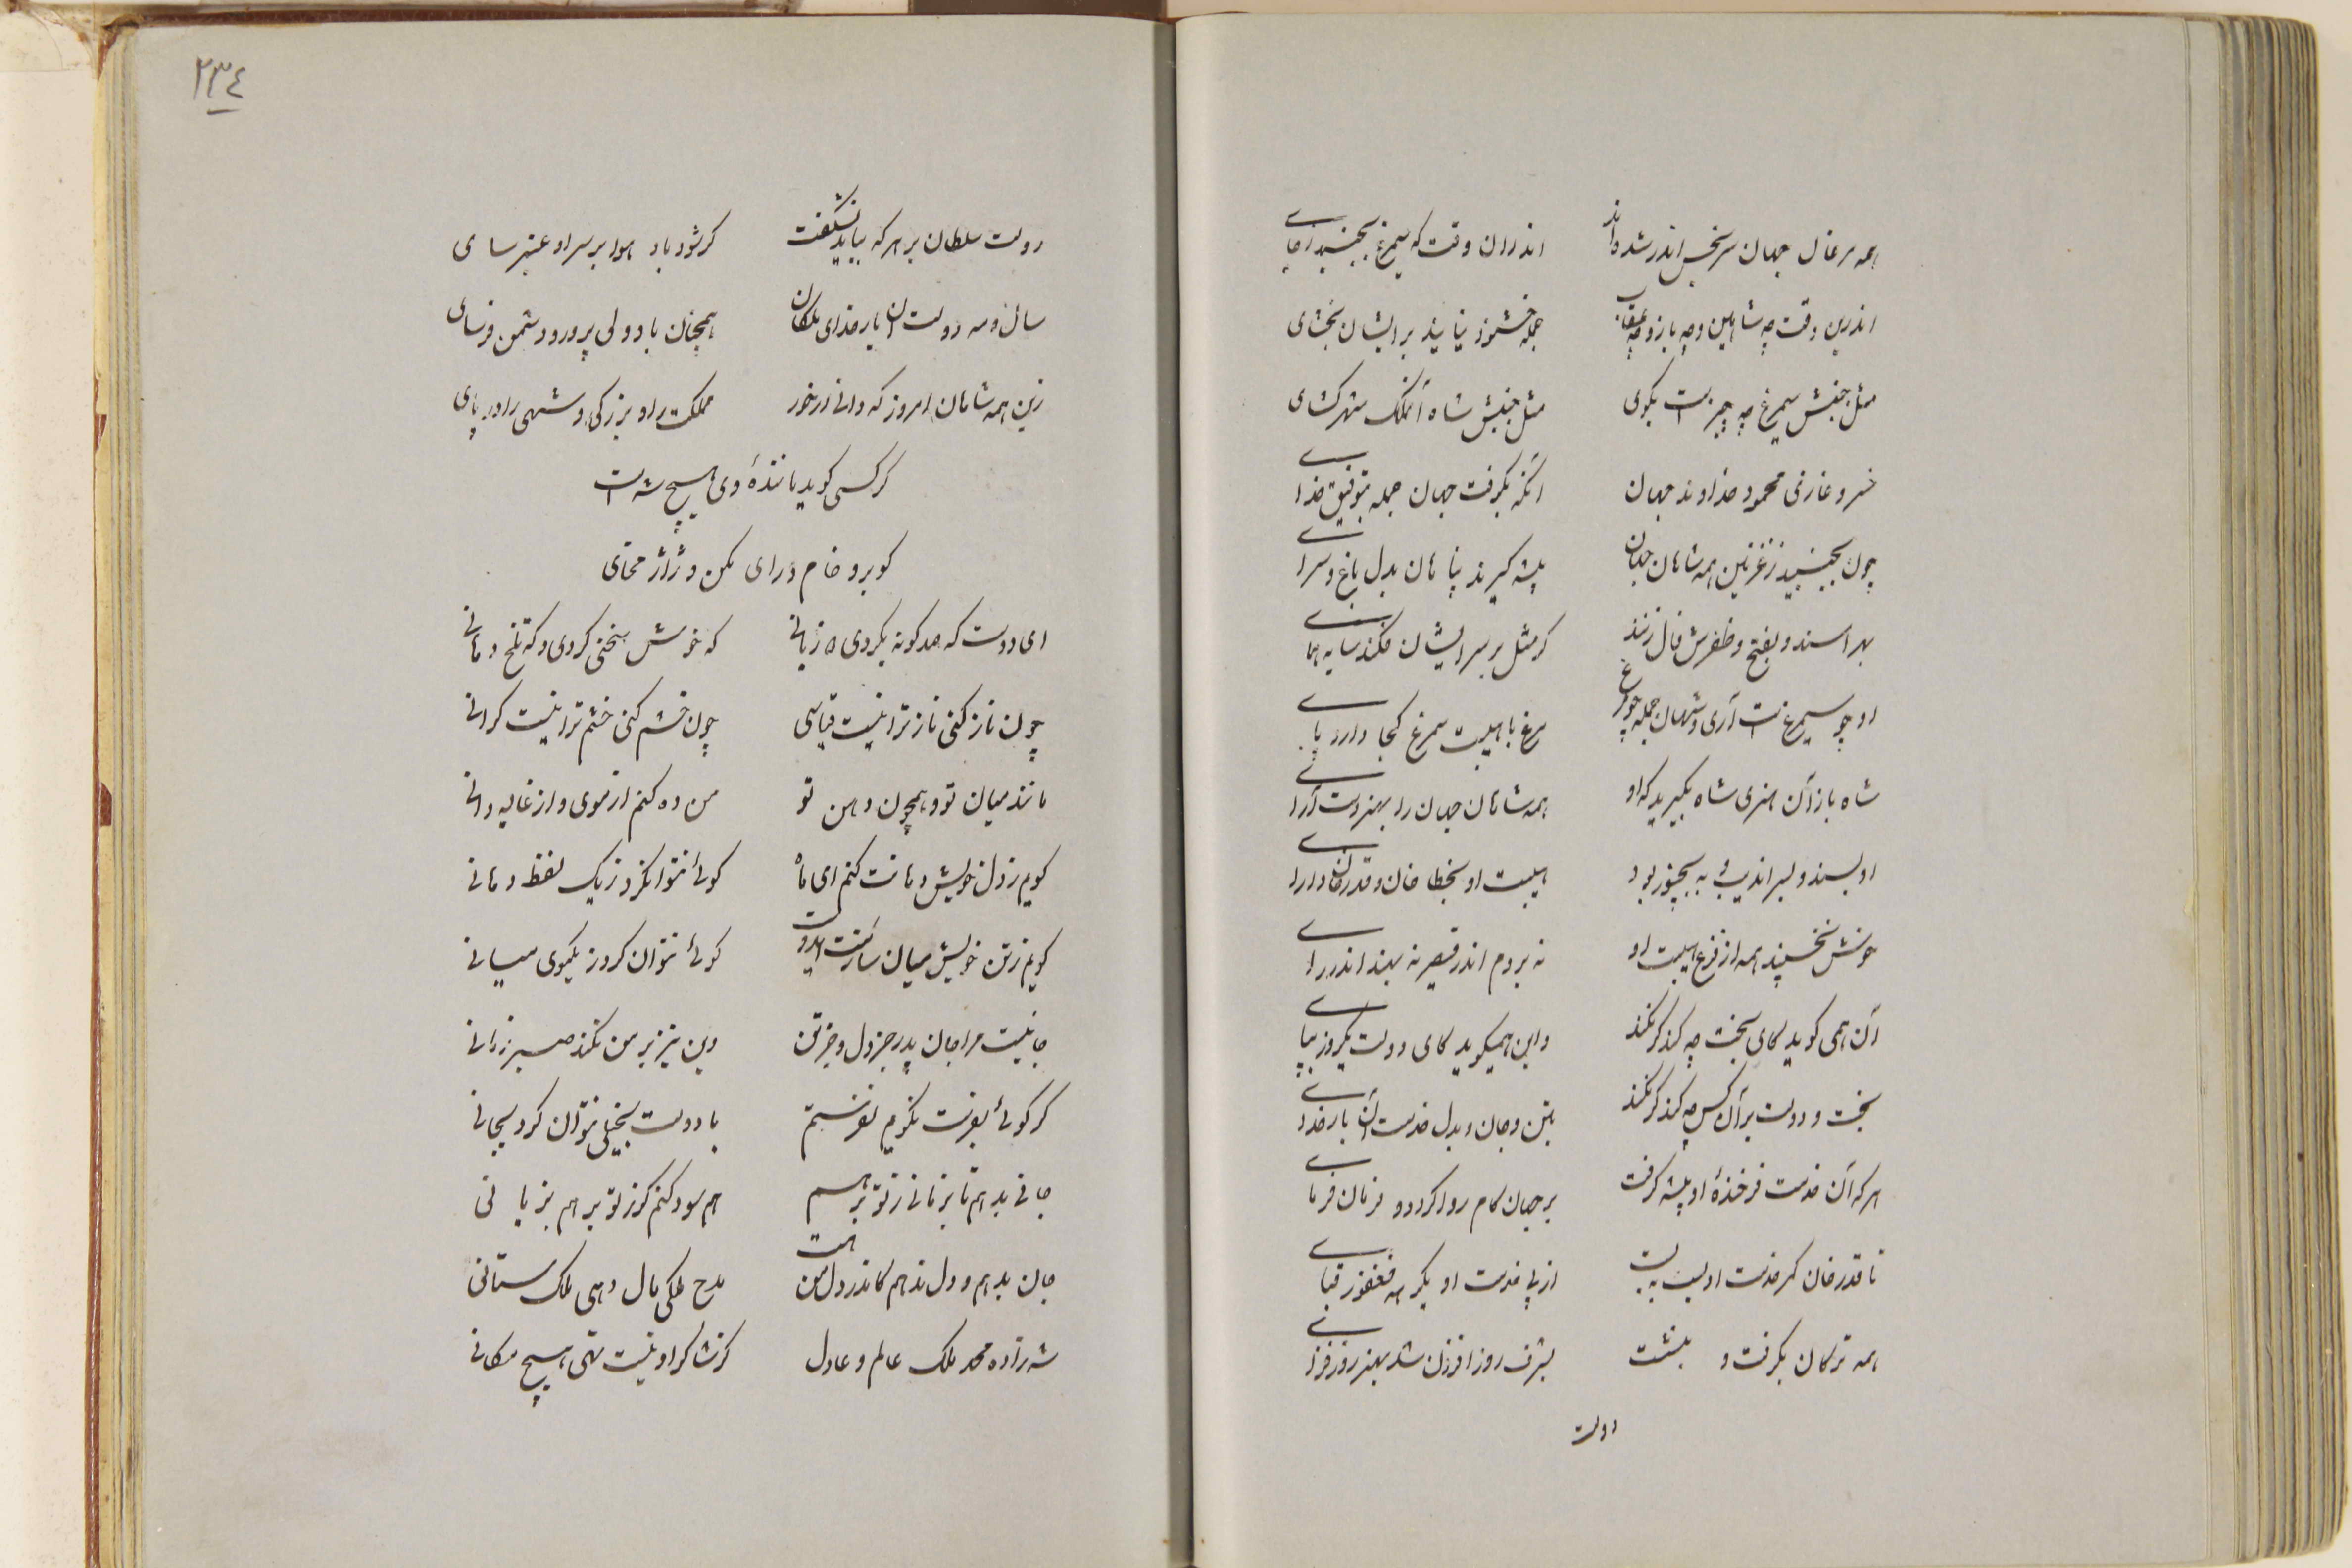 همه مرغان جهان سرخس اندر شده‌اند اندران وقت که سیمرغ بجنبید از جای
اندرین وقت چه شاهین و چه باز و چه عقاب جمله خشنود نیایند بر ایشان بخشای
مثل جنبش سیمرغ چه چیز است بگوی مثل جنبش شاه آنملک شهر گشای
خسرو غازی محمود خداوند جهان آنکه بگرفت جهان جمله بتوفیق خدای
چون بجنبید ز غزنین همه شاهان جهان پیشه گیرند بیابان بدل باغ و سرای
بهراسند و بفتح و ظفرش فال زنند گر مثل بر سر ایشان فکند سایه همای
او چو سیمرغ است آری و شهان جمله چو مرغ مرغ با هیبت سیمرغ کجا دارد پای
شاه باز آن هنری شاه بگیرید که او همه شاهان جهان را بهنر دست گرای
هیبت او بخطا خان و قدرخان را رای
خوش نخسپند همه از فزع هیبت او نه بروم اندر قیصر نه بهند اندر رای
آن همی گوید کای بخت چه کند گر نکند و این همیگوید کای دولت یکروز بپای
بخت و دولت بر آن کس چه کند گر نکند بتن و جان و بدل خدمت آن بار خدای
هر که آن خدمت فرخندهٔ او پیشه گرفت بر جهان کام روا گردد و فرمان فرمای
تا قدرخان کمر خدمت او بست ببست از پی خدمت او یکرهه فغفور قبای
همه ترکان بگرفت و بنشست بشرف روز افزون شد بهنر روز فزای
دولت
۲۳۴
دولت سلطان بر هر که بیاید نشگفت گر شود باد هوا بر سر او عنبر سای
سال و مه دولت آن بار خدای ملکان همچنان باد ولی پرور و دشمن فرسای
زین همه شاهان امروز که دانی در خور مملکت را و بزرگی و شهی را در پای
گر کسی گوید مانندهٔ وی هیچ شه است
گو برو خام درای مکن و ژاژ مخای
ای دوست که صد گونه بگردی بزبانی گه خوش سخنی گردی و گه تلخ دهانی
چون ناز کنی ناز ترا نیست قیاسی چون خشم کنی خشم ترا نیست کرانی
مانند میان تو و همچون دهن تو من ده کنم از موی و از غالیه دانی
گویم ز دل خویش دهانت کنم ای ماه گوئی نتوان کرد ز یک نقطه دهانی
گویم ز تن خویش میان سازمت ای دوست گوئی نتوان کرد ز یکموی میانی
جا نیست مرا جان پدر جز دل و جز تن وین نیز بر من نکند صبر زمانی
گر گوئی بفرست نگویم نفرستم با دوست بخیلی نتوان کرد بجانی
جانی بدهم تا بزمانی ز تو برهم هم سود کنم گر ز تو برهم بزبانی
جان بدهم و دل ندهم کاندر دل من هست مدح ملکی مال دهی ملک ستانی
شه زاده محمد ملک عالم و عادل کز شاکر او نیست تهی هیچ مکانی